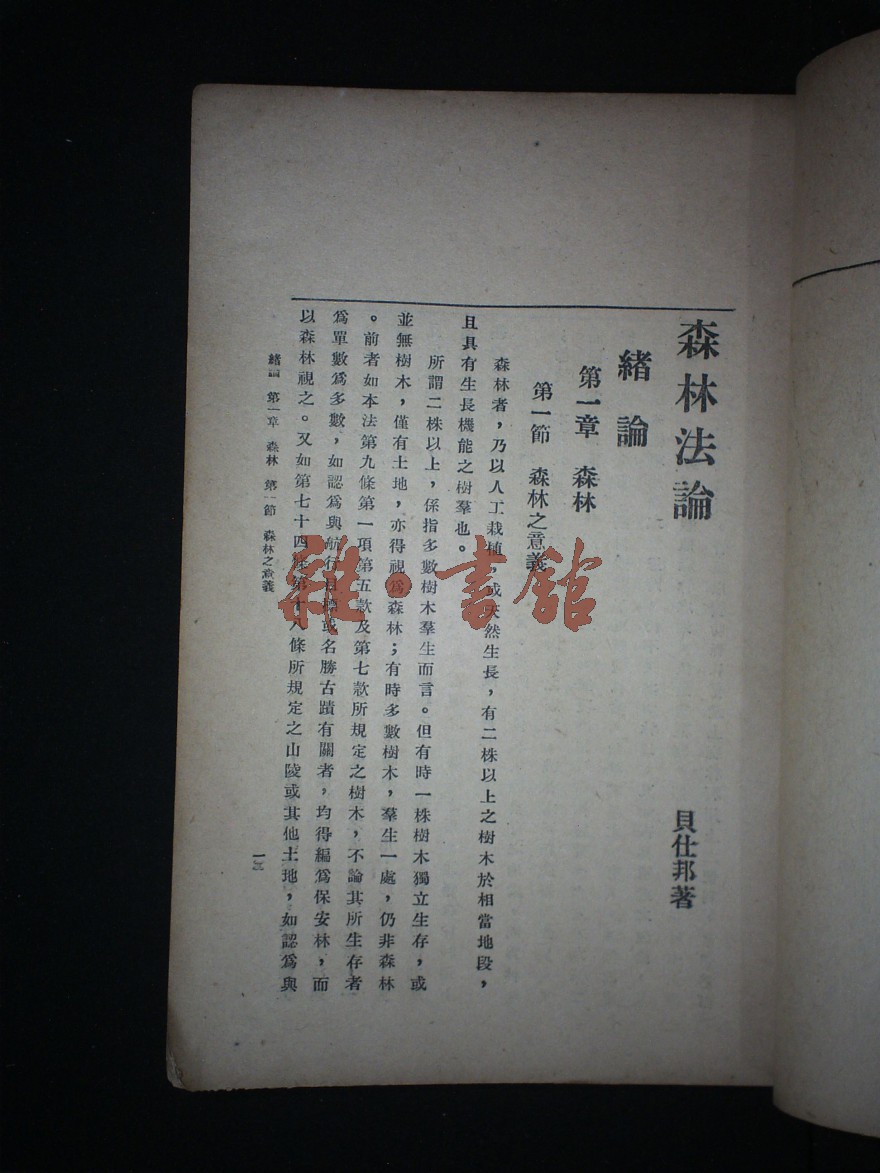 森林法論
貝仕邦著
緒論
第一章　森林
第一節　森林之意義
森林者，乃以人工栽植，或天然生長，有二株以上之樹木於相當地段，
且具有生長機能之樹羣也。
所謂二株以上，係指多數樹木羣生而言。但有時一株樹木獨立生存，或
並無樹木，僅有土地，亦得視爲森林；有時多數樹木，羣生一處，仍非森林
。前者如本法第九條第一項第五款及第七款所規定之樹木，不論其所生存者
爲單數爲多數，如認爲與航行目標或名勝古蹟有關者，均得編爲保安林，而
以森林視之。又如第七十四條第十八條所規定之山陵或其他土地，如認爲與
緒論　第一章　森林　第一節　森林之意義
雜·書館